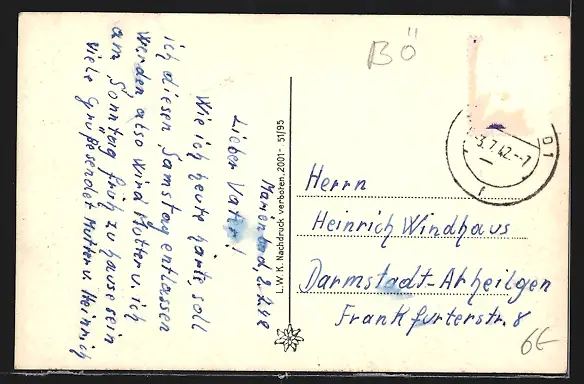 BÖ
Marienbad, 2.7.42
Lieber Vater!
Wie ich heute hörte, soll
ich diesen Samstag entlassen
werden also wird Mutter u. ich
am Sonntag früh zu hause sein
Viele Grüße sendet Mutter u. Heinrich
L.W.K. Nachdruck verboten. 2001 - 51/95
-3.7.42.--7
Herrn
Heinrich Windhaus
Darmstadt-Arheilgen
Frankfurterstr. 8
6€